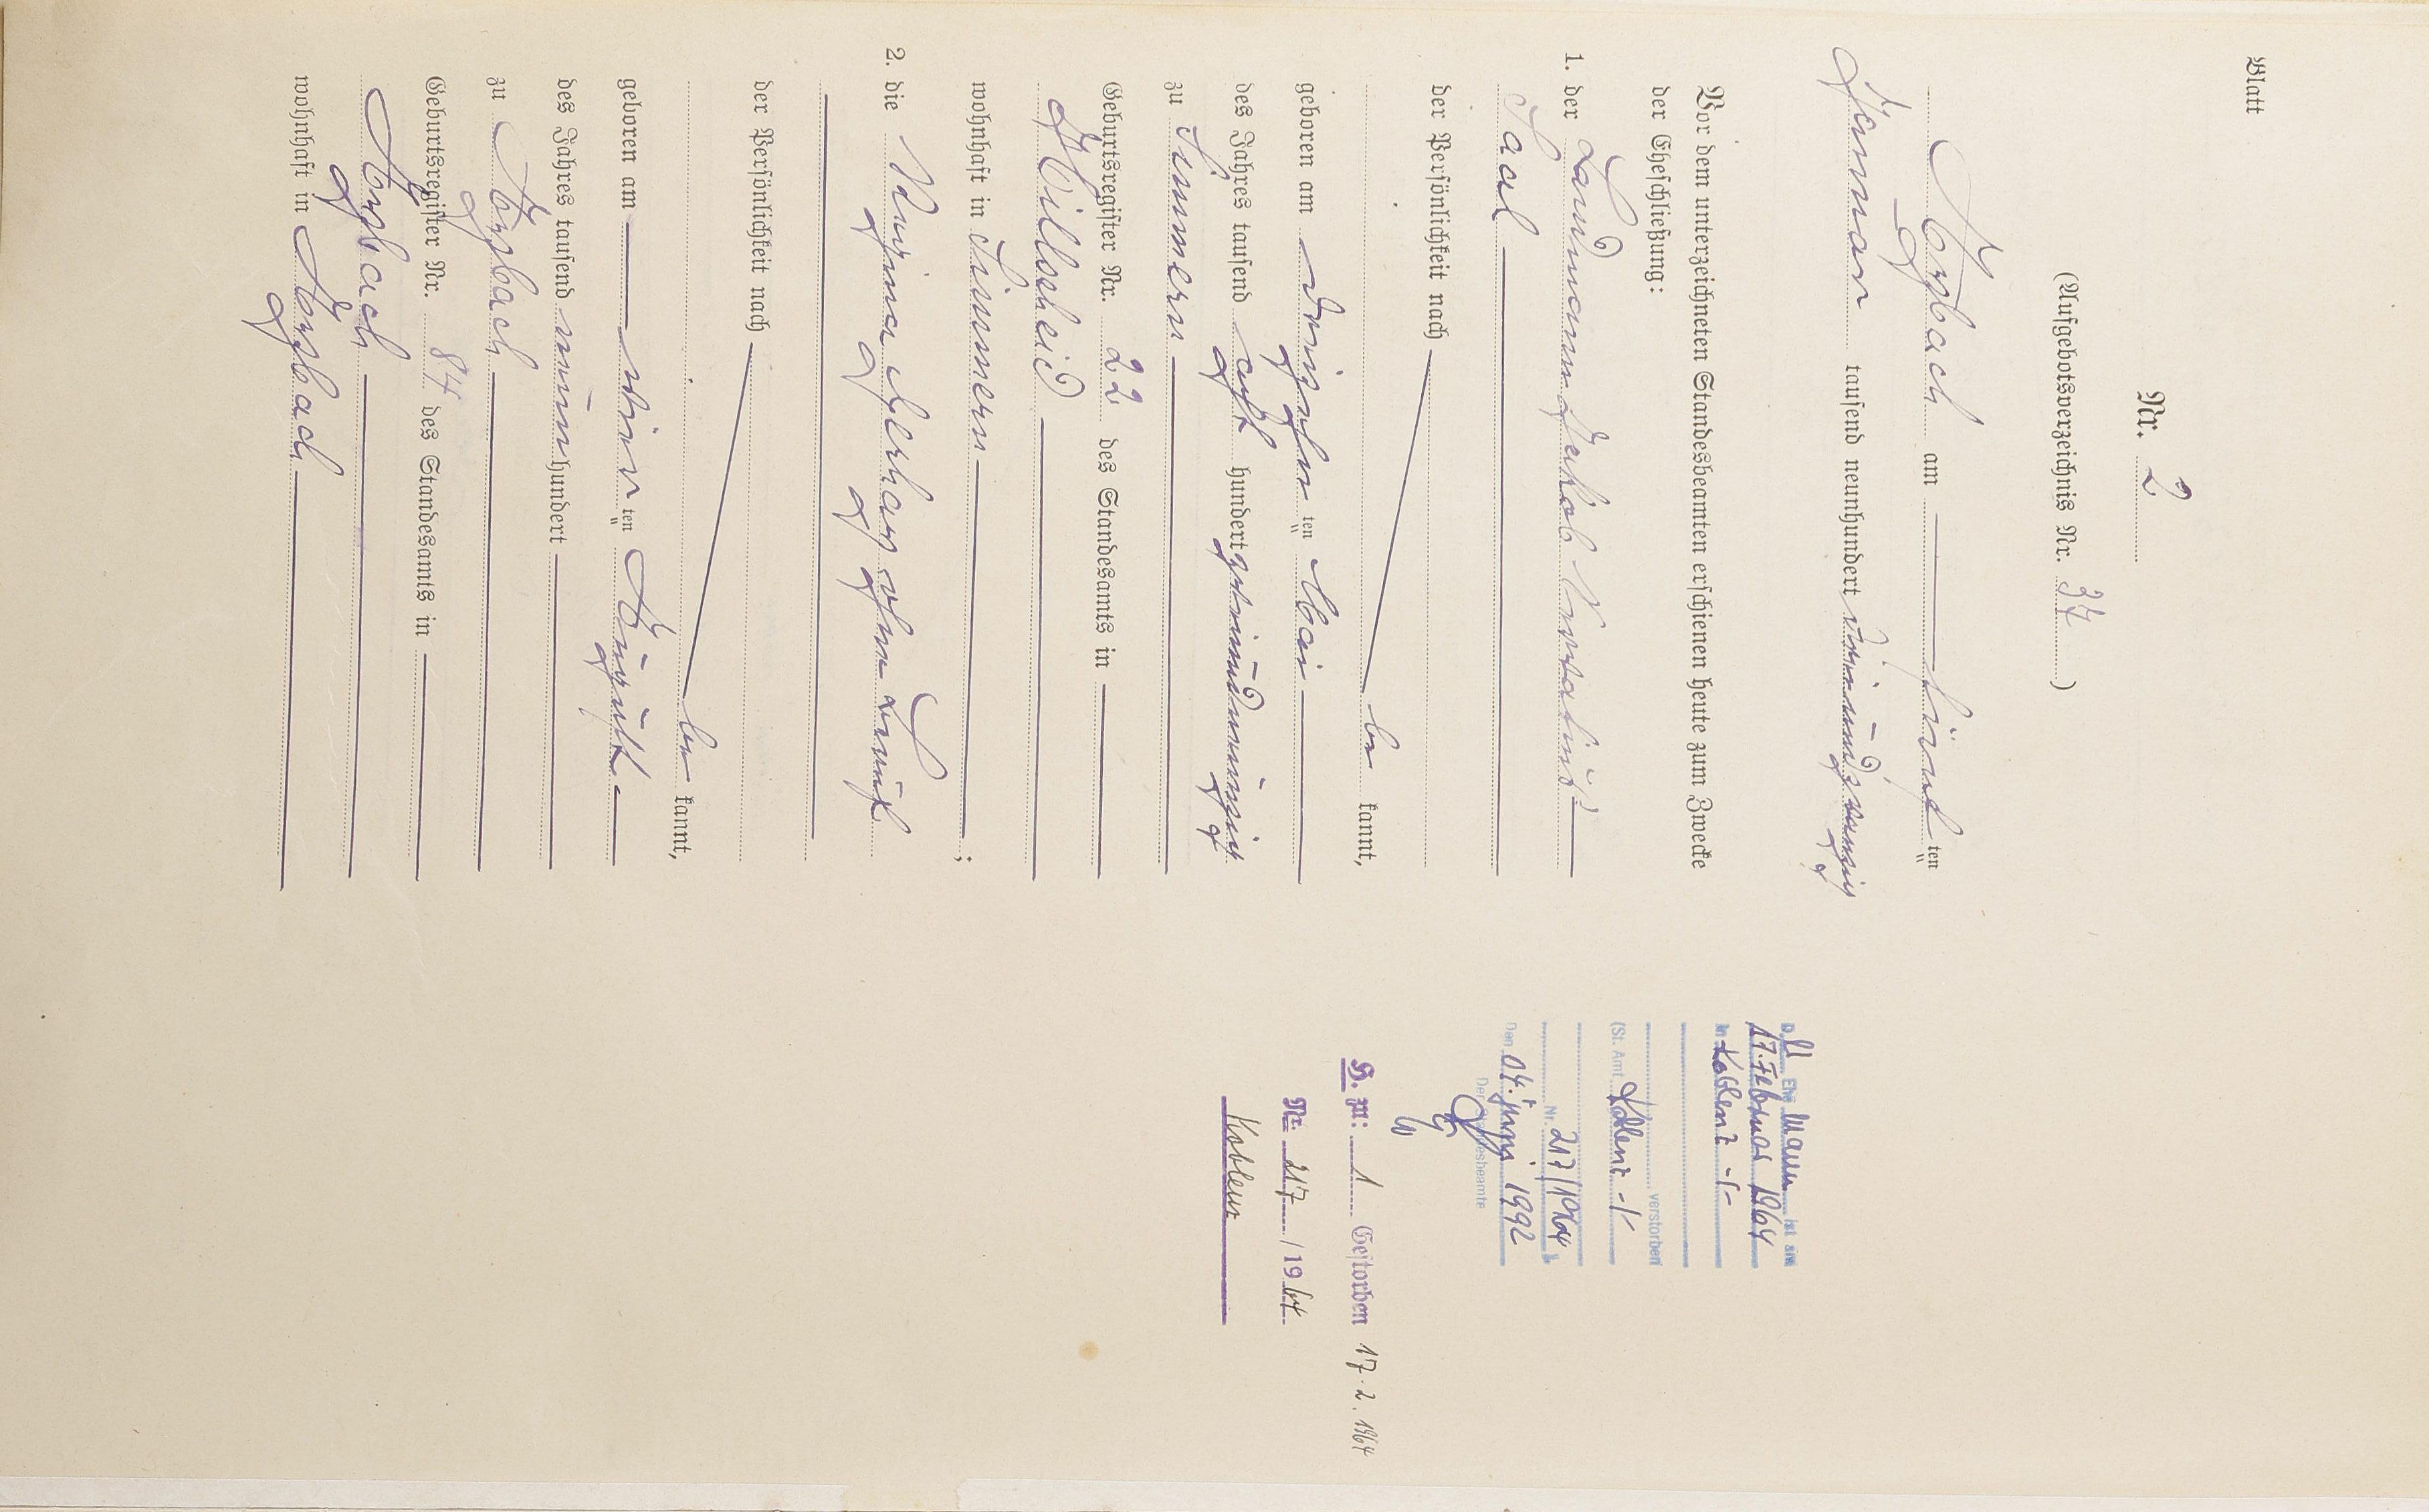 Blatt
Nr. 2
(Aufgebotsverzeichnis Nr. 37)
Arzbach am fünf ten
Januar tausend neunhundert dreiundzwanzig.
Vor dem unterzeichneten Standesbeamten erschienen heute zum Zwecke
der Eheschließung:
1. der Landmann Jakob
Saal
der Persönlichkeit nach
be kannt,
geboren am dreizehn ten Mai
des Jahres tausend acht hundert
zu Simmern
Geburtsregister Nr. 22 des Standesamts in
Hillscheid
wohnhaft in Simmern ;
2. die Regina Gerharz ohne Beruf
der Persönlichkeit nach
be kannt,
geboren am vier ten August
des Jahres tausend neun hundert
zu Arzbach
Geburtsregister Nr. 84 des Standesamts in
Arzbach
wohnhaft in Arzbach
D er Ehe mann ist am
17. Februar 1964
in Koblenz -/-
verstorben
(St. Amt Koblenz -/-
Nr. 217/1964
Den 04. Juni 1992
Der Standesbeamte
H. M: 1 Gestorben 17.2.1964
Nr. 217 / 1964
Koblenz